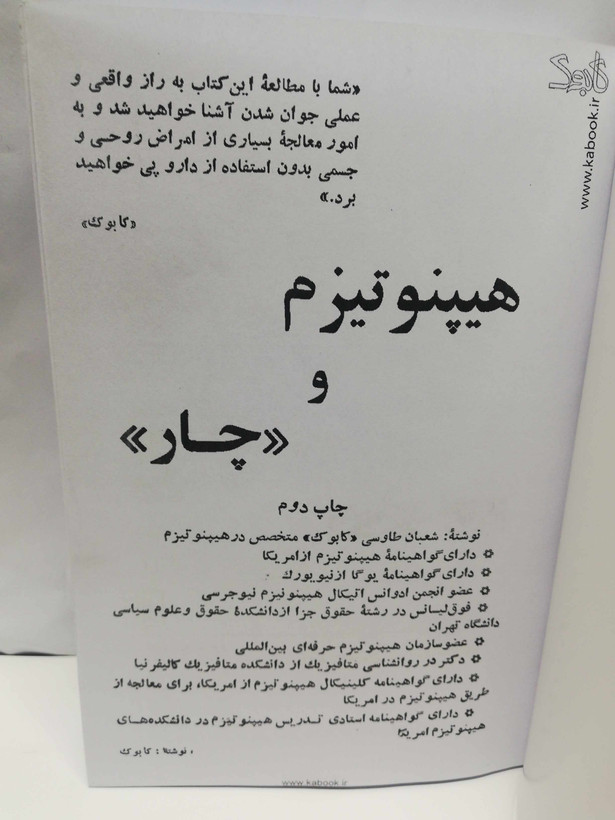 کابوک
www.kabook.ir
«شما با مطالعهٔ این کتاب به راز واقعی و
عملی جوان شدن آشنا خواهید شد و به
امور معالجهٔ بسیاری از امراض روحی و
جسمی بدون استفاده از دارو پی خواهید
برد.»
«کابوک»
هیپنوتیزم
و
«چار»
چاپ دوم
نوشتهٔ: شعبان طاوسی «کابوک» متخصص در هیپنوتیزم
✡ دارای گواهینامهٔ هیپنوتیزم از امریکا
✡ دارای گواهینامهٔ یوگا از نیویورک
✡ عضو انجمن ادوانس اتیکال هیپنوتیزم نیوجرسی
✡ فوق‌لیسانس در رشتهٔ حقوق جزا از دانشکدهٔ حقوق و علوم سیاسی
دانشگاه تهران
✡ عضو سازمان هیپنوتیزم حرفه‌ای بین‌المللی
✡ دکتر در روانشناسی متافیزیک از دانشکده متافیزیک کالیفرنیا
✡ دارای گواهینامه کلینیکال هیپنوتیزم از امریکا، برای معالجه از
طریق هیپنوتیزم در امریکا
✡ دارای گواهینامه استادی تدریس هیپنوتیزم در دانشکده‌های
هیپنوتیزم امریکا
نوشتهٔ: کابوک
www.kabook.ir